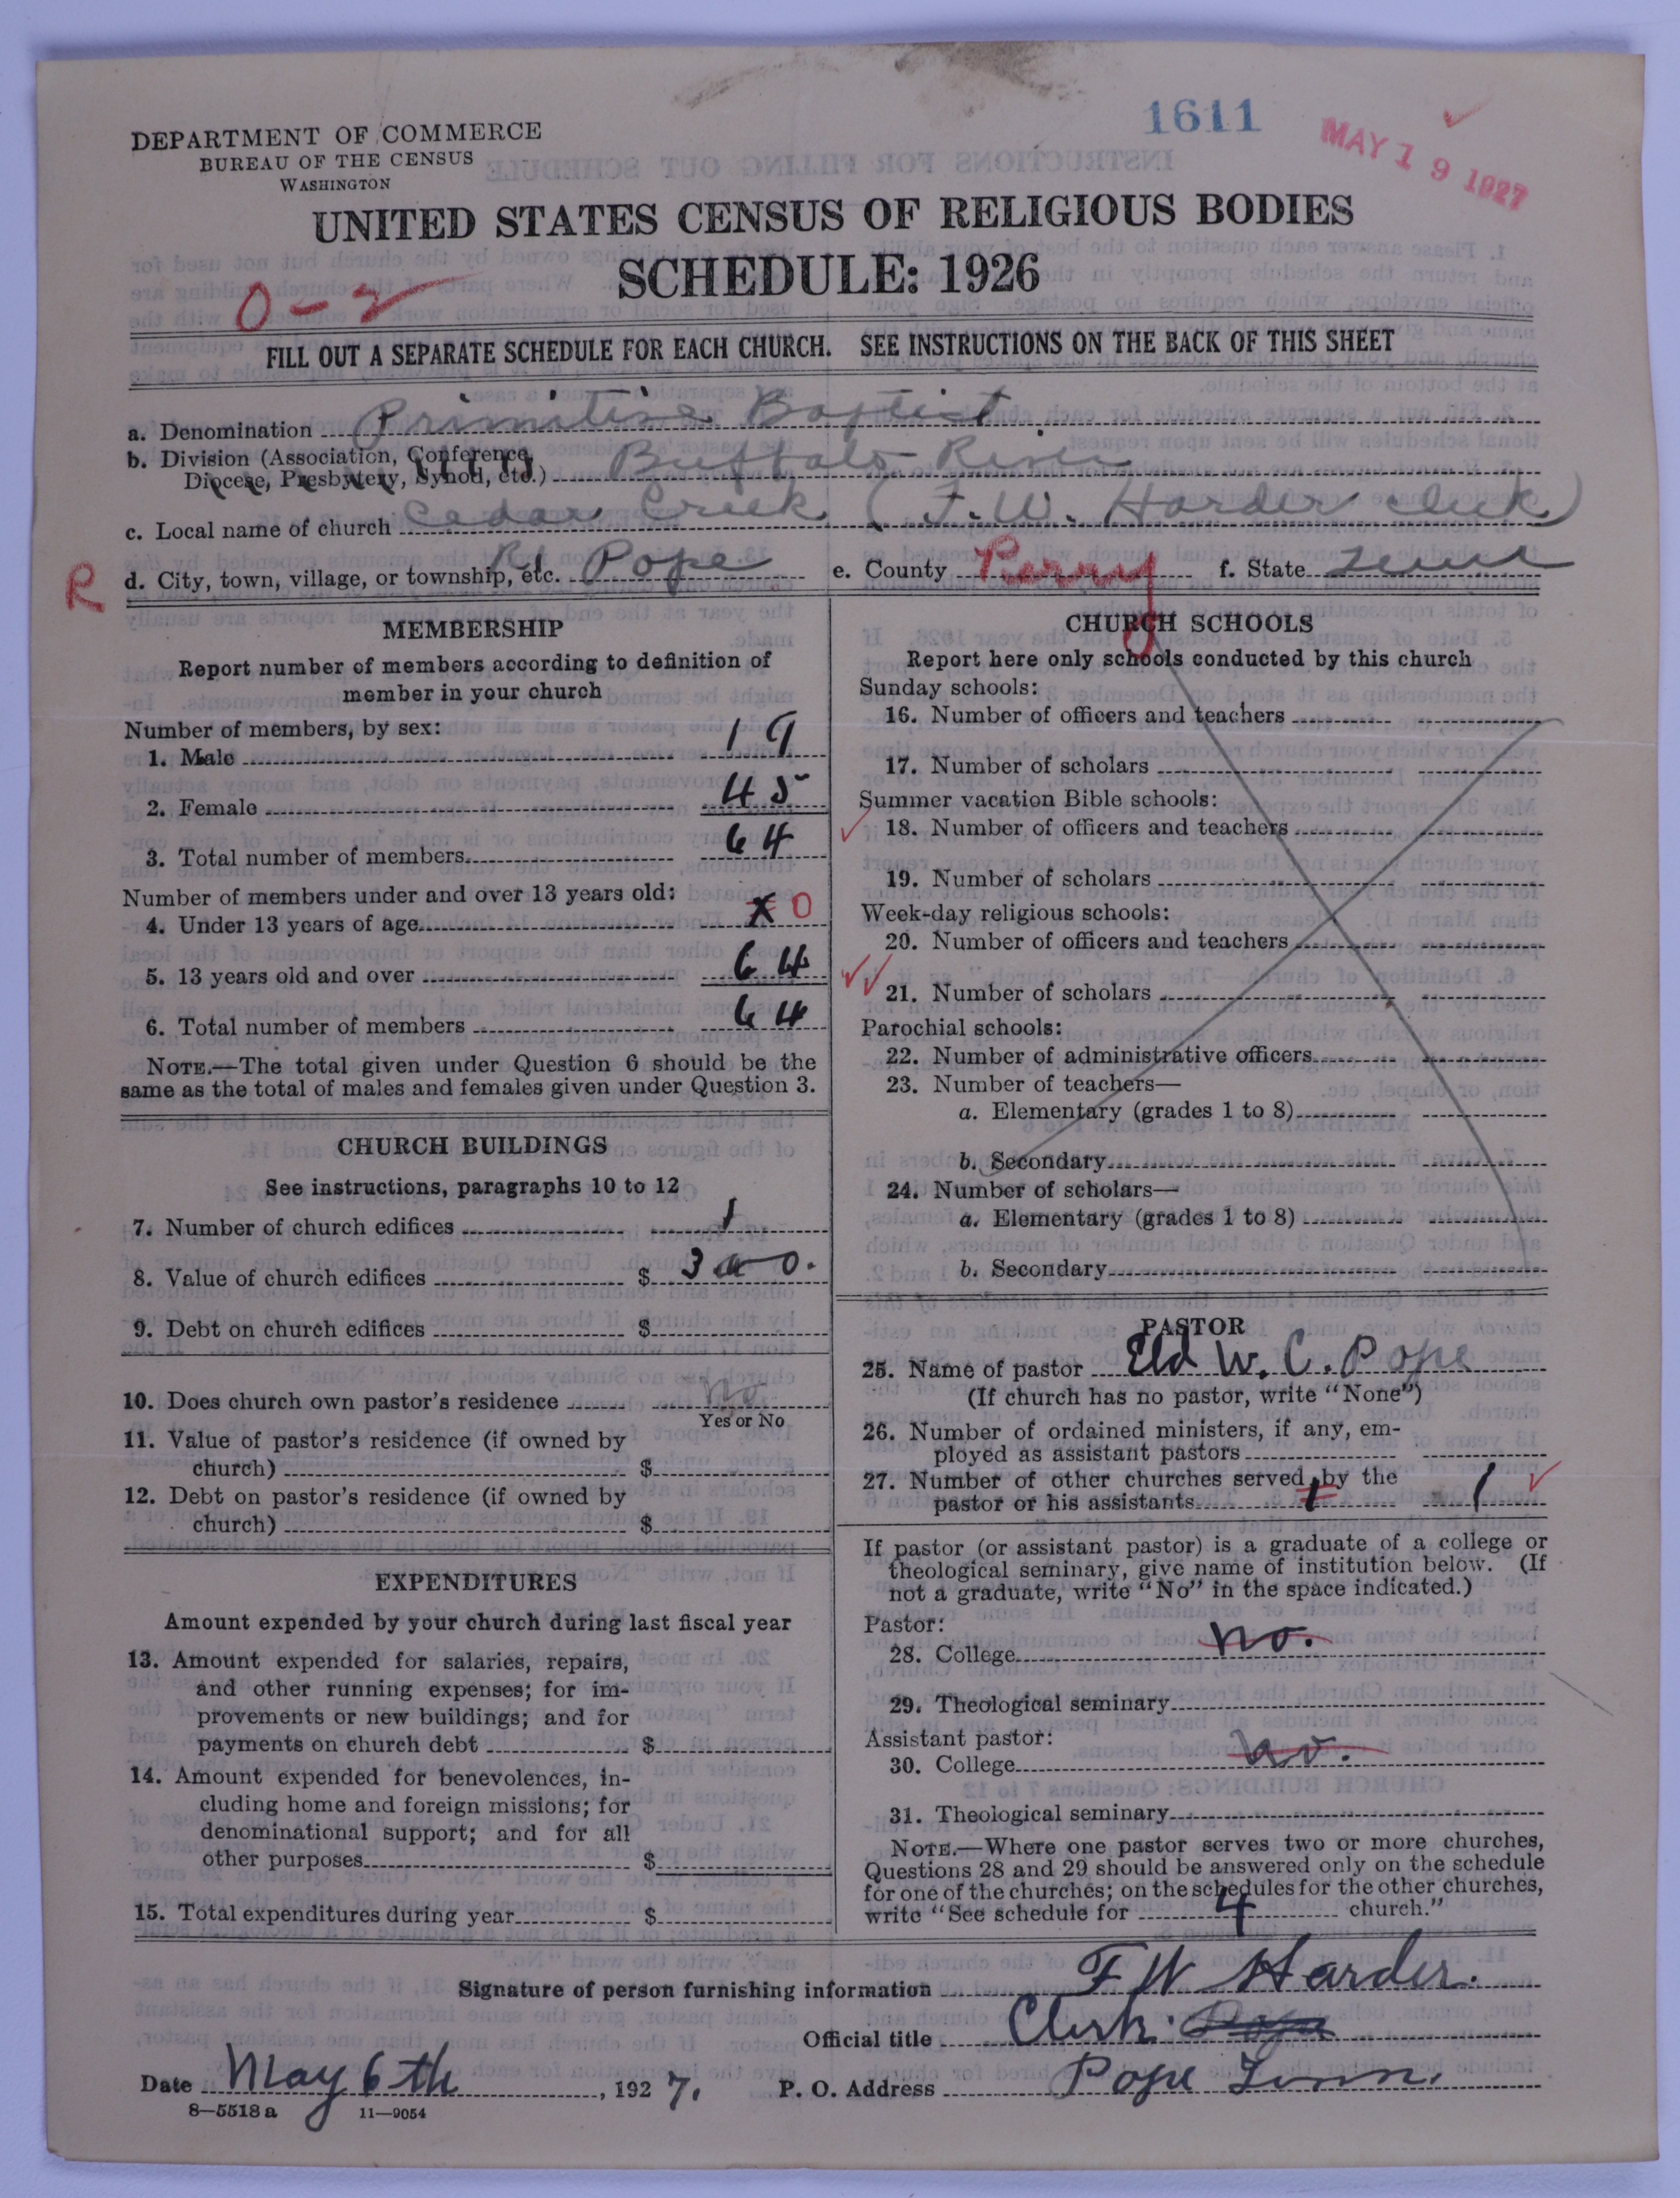 1611
MAY 19 1927
DEPARTMENT OF COMMERCE
BUREAU OF THE CENSUS
WASHINGTON
UNITED STATES CENSUS OF RELIGIOUS BODIES
SCHEDULE: 1926
0-2
FILL OUT A SEPARATE SCHEDULE FOR EACH CHURCH. SEE INSTRUCTIONS ON THE BACK OF THIS SHEET
a. Denomination Primitive Baptist
b. Division (Association, Conference, Diocese, Presbytery, Synod, etc.) Buffalo River
c. Local name of church Cedar Creek (F. W. Harder clerk)
R d. City, town, village, or township, etc. R1 Pope e. County Perry f. State Tenn
MEMBERSHIP
Report number of members according to definition of
member in your church
Number of members, by sex:
1. Male 19
2. Female 45
3. Total number of members 64
Number of members under and over 13 years old:
4. Under 13 years of age X 0
5. 13 years old and over 64
6. Total number of members 64
NOTE.—The total given under Question 6 should be the
same as the total of males and females given under Question 3.
CHURCH BUILDINGS
See instructions, paragraphs 10 to 12
7. Number of church edifices 1
8. Value of church edifices $ 300.
9. Debt on church edifices $
10. Does church own pastor's residence No
Yes or No
11. Value of pastor's residence (if owned by
church) $
12. Debt on pastor's residence (if owned by
church) $
EXPENDITURES
Amount expended by your church during last fiscal year
13. Amount expended for salaries, repairs,
and other running expenses; for im-
provements or new buildings; and for
payments on church debt $
14. Amount expended for benevolences, in-
cluding home and foreign missions; for
denominational support; and for all
other purposes $
15. Total expenditures during year $
CHURCH SCHOOLS
Report here only schools conducted by this church
Sunday schools:
16. Number of officers and teachers
17. Number of scholars
Summer vacation Bible schools:
18. Number of officers and teachers
19. Number of scholars
Week-day religious schools:
20. Number of officers and teachers
21. Number of scholars
Parochial schools:
22. Number of administrative officers
23. Number of teachers—
a. Elementary (grades 1 to 8)
b. Secondary
24. Number of scholars—
a. Elementary (grades 1 to 8)
b. Secondary
PASTOR
25. Name of pastor Eld W. C. Pope
(If church has no pastor, write "None")
26. Number of ordained ministers, if any, em-
ployed as assistant pastors
27. Number of other churches served by the
pastor or his assistants 1 1
If pastor (or assistant pastor) is a graduate of a college or
theological seminary, give name of institution below. (If
not a graduate, write "No" in the space indicated.)
Pastor:
28. College no.
29. Theological seminary
Assistant pastor:
30. College no.
31. Theological seminary
NOTE.—Where one pastor serves two or more churches,
Questions 28 and 29 should be answered only on the schedule
for one of the churches; on the schedules for the other churches,
write "See schedule for 4 church."
Signature of person furnishing information F W Harder.
Official title Clerk. Pope
Date May 6th, 1927. P. O. Address Pope Tenn.
8—5518 a 11—9054